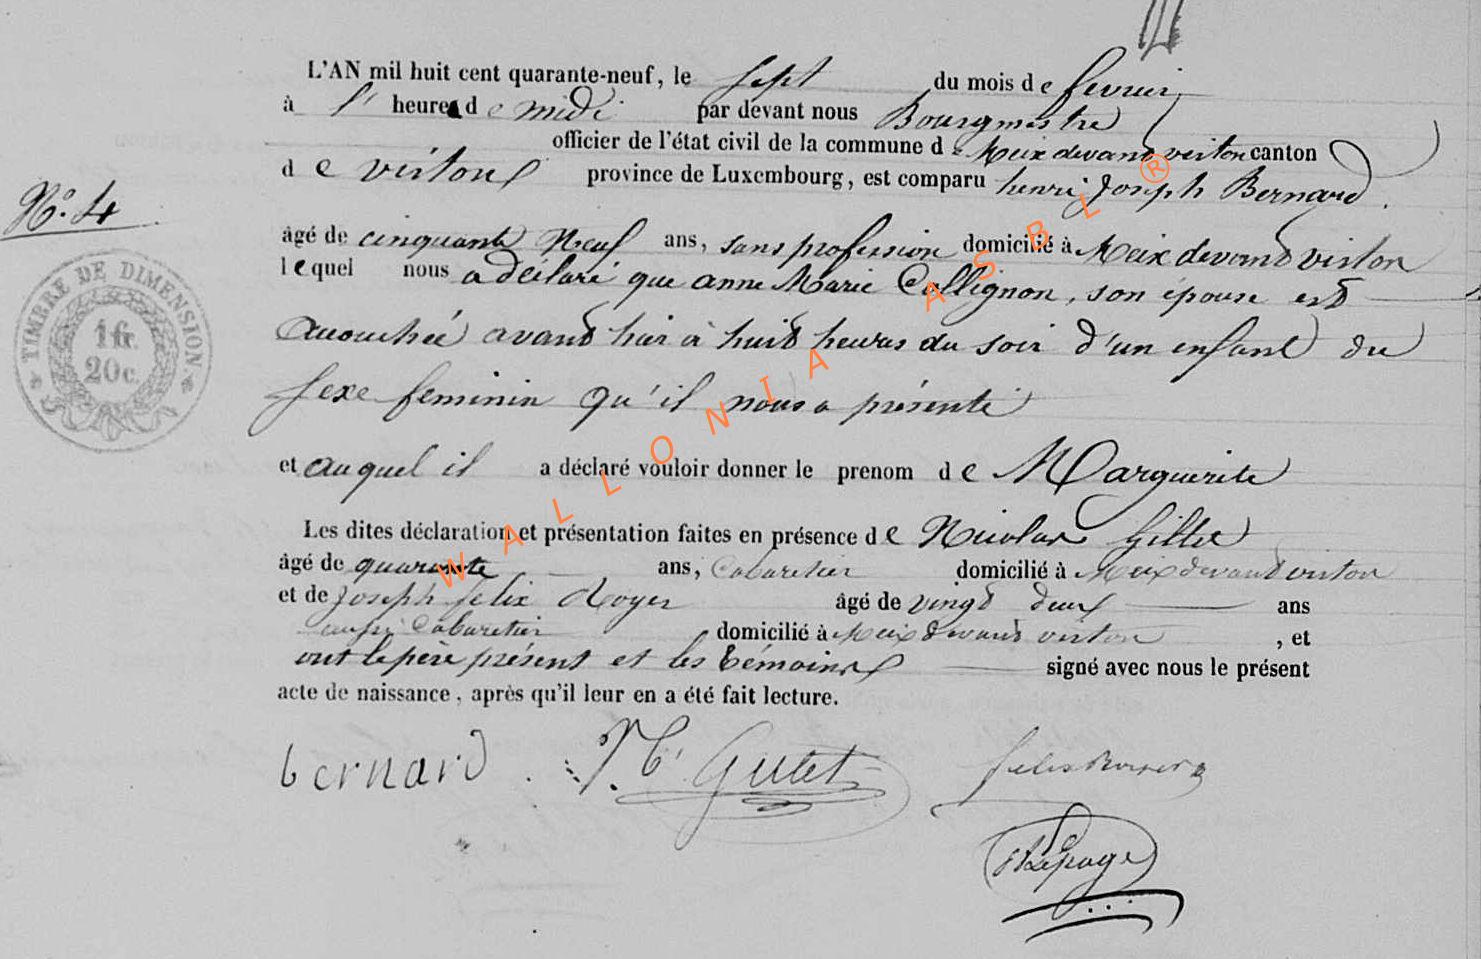 L'AN mil huit cent quarante-neuf, le sept du mois de fevrier
à l' heure de midi par devant nous Bourgmestre
officier de l'état civil de la commune de Meix devant virton canton
de virton province de Luxembourg, est comparu henri Joseph Bernard.
N.° 4
âgé de cinquante Neuf ans, sans profession domicilié à Meix devant virton
lequel nous a déclaré que anne Marie Collignon, son épouse est
accouchée avant hier à huit heures du soir d'un enfant du
sexe feminin qu'il nous a présenté
et auquel il a déclaré vouloir donner le prenom de Marguerite
Les dites déclaration et présentation faites en présence de Nicolas
âgé de quarante ans, Cabaretier domicilié à Meix devant virton
et de Joseph felix Royer âgé de vingt deux ans
aussi Cabaretier domicilié à Meix devant virton, et
ont le père présent et les témoins signé avec nous le présent
acte de naissance, après qu'il leur en a été fait lecture.
TIMBRE DE DIMENSION
1 fr.
20 c.
bernard
felix Royer
Lepage
WALLONIA ASBL ®